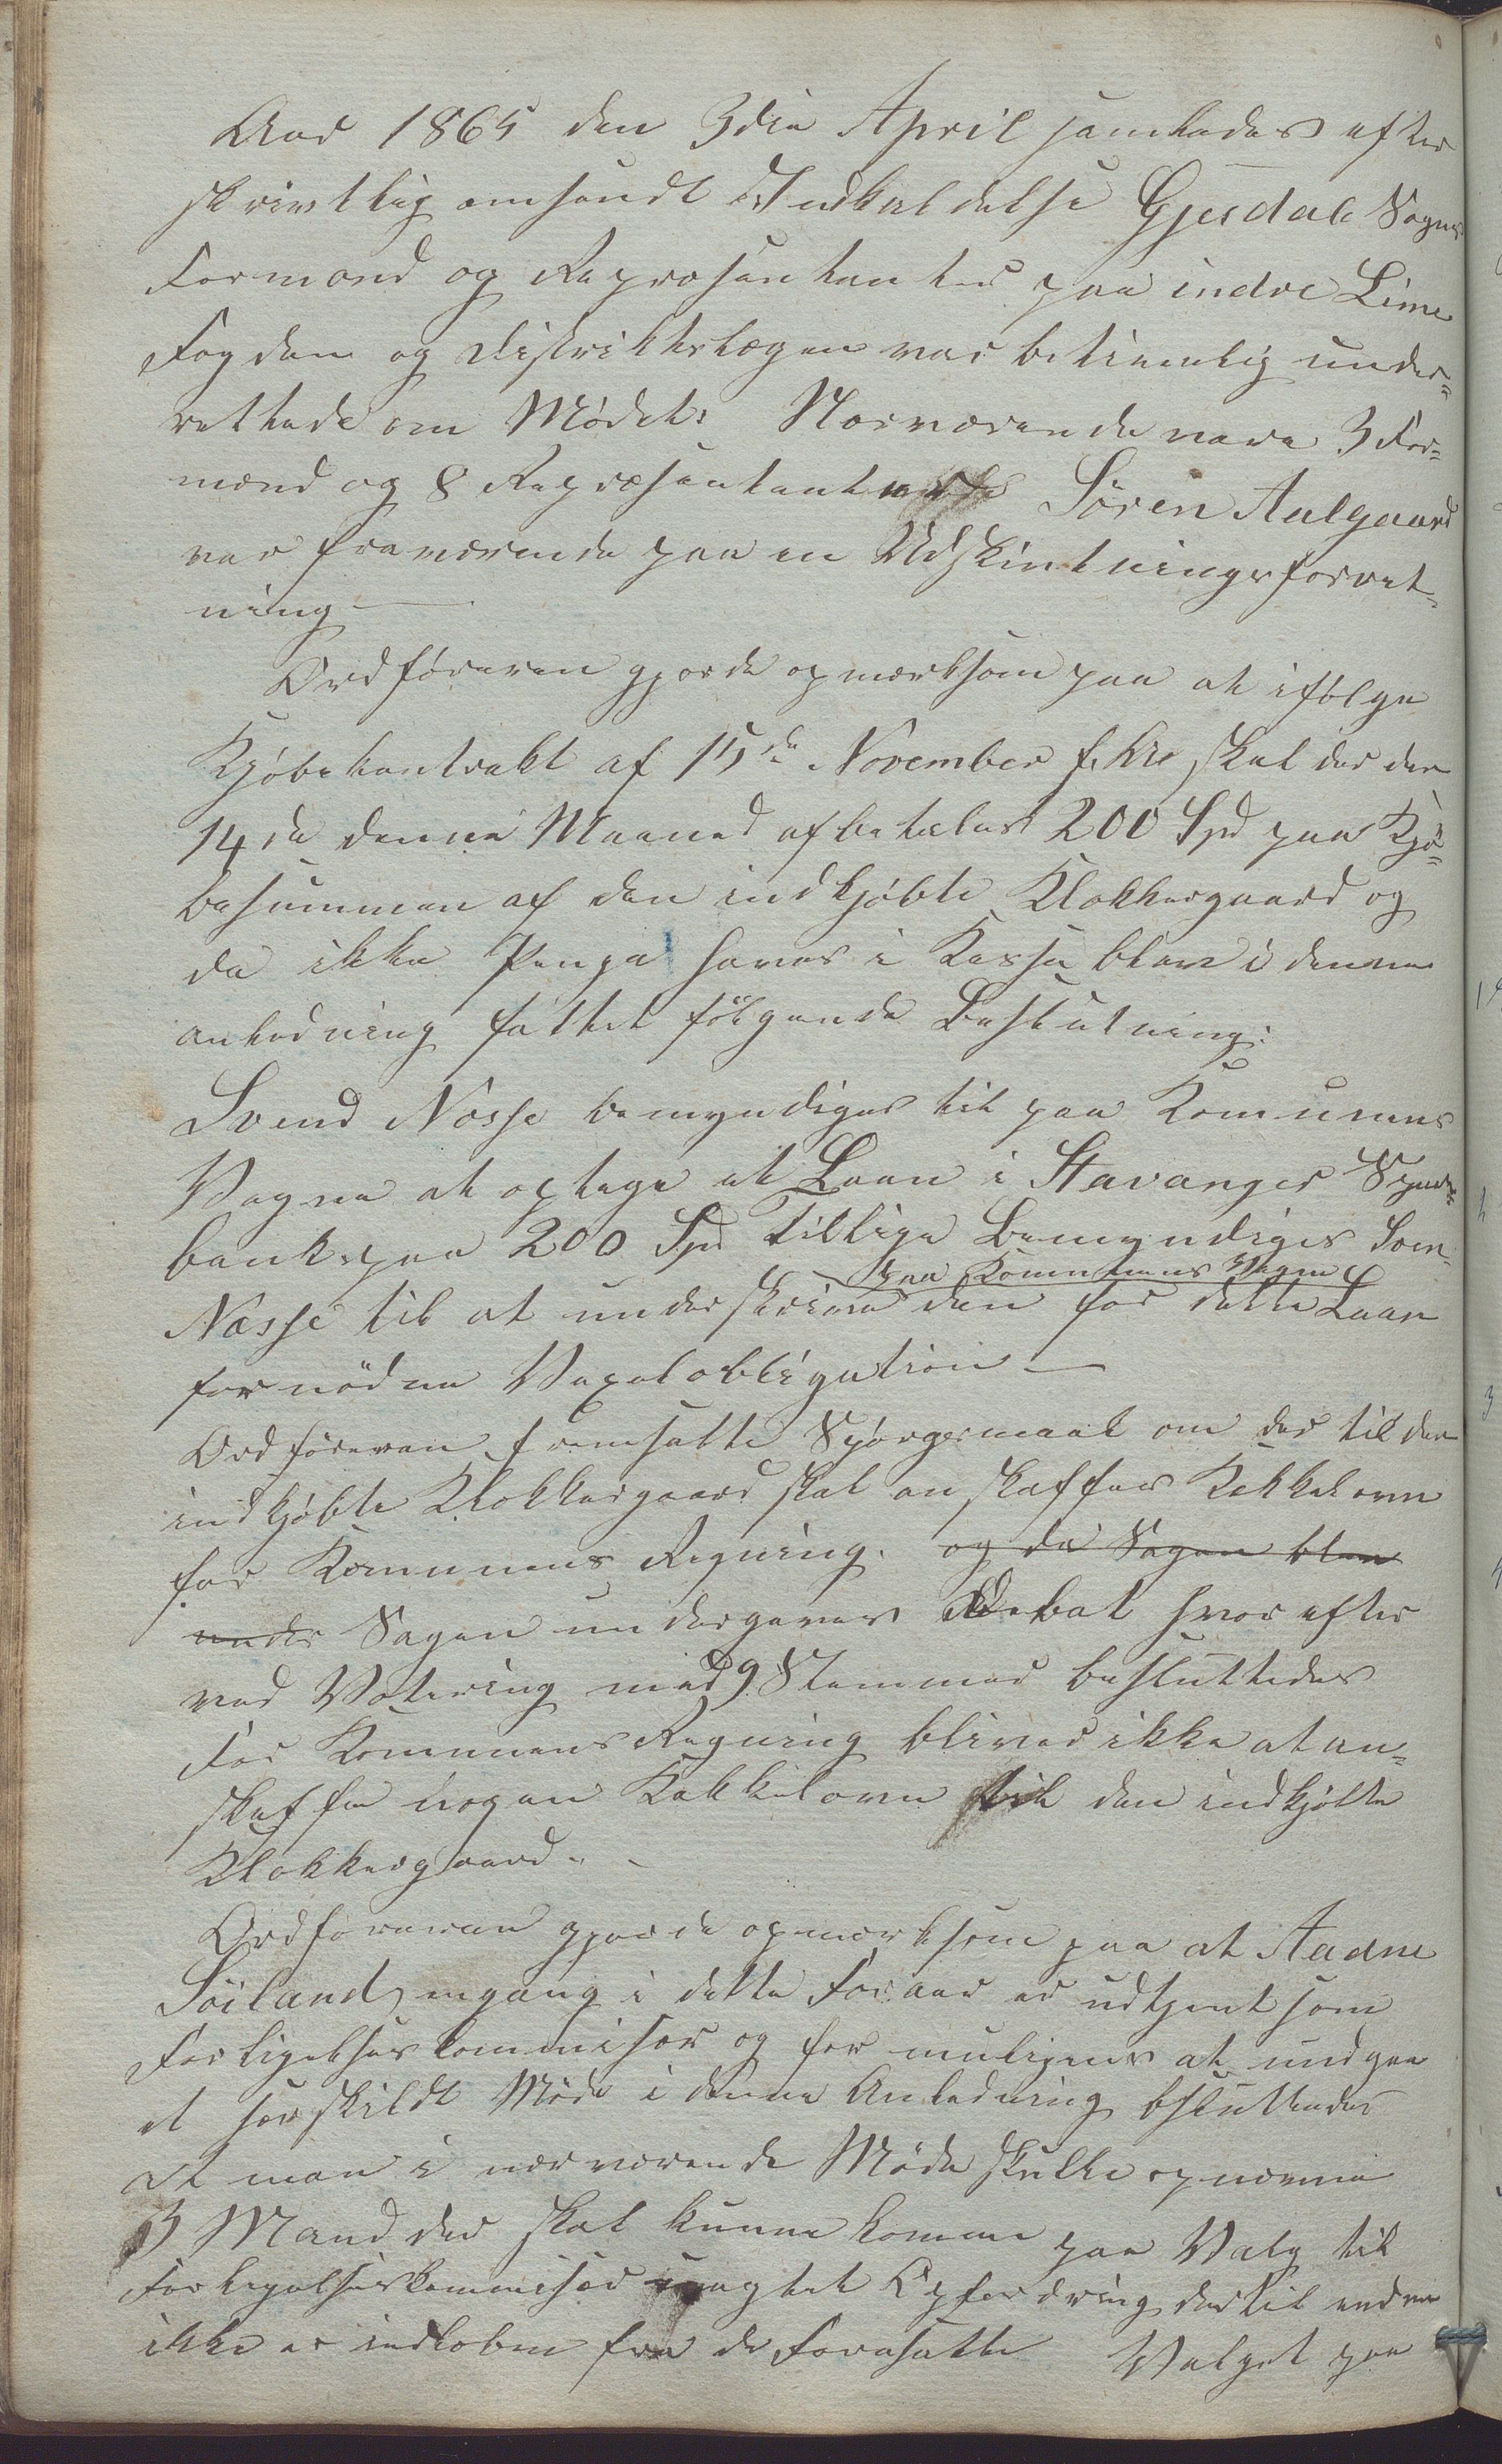 Aar 1865 den 3die April samledes efter
skrivtlig omsendt Indkaldelse Gjesdals Sogns
Formænd og Repræsentanter paa indre Lime
Fogden og Distriktslægen var betimelig under-
rettede om Mødet: Nærværende vare 3 For-
mænd og 8 Repræsentanter Søren Aalgaard
var fraværende paa en Udskivtningsforret-
ning —
Ordføreren gjorde opmærksom paa at ifølge
Kjøbekontrakt af 15de November f. Aar skal der den
14de denne Maaned afbetales 200 Spd paa Kjø-
besummen af den indkjøbte Klokkergaard og
da ikke Penge haves i Kassen blev i denne
anledning fattet følgende Beslutning:
Svend Næsse bemyndiges til paa Komunens
Vegne at optage et Laan i Stavanger Spare-
bank paa 200 Spd Tillige Bemyndiges Sven
paa Kommunens Vegne
Næsse til at underskrive den for dette Laan
fornødne Vexelobligation —
Ordføreren fremsatte Spørgsmaal om der til den
indkjøbte Klokkergaard skal anskaffes Kakkelovn
for Kommunens Regning. og da Sagen blev
under Sagen undergaves Debat hvorefter
ved Votering med 9 Stemmer besluttedes
For Kommunens Regning bliver ikke at an-
skaffe nogen Kakkelovn til den indkjøbte
Klokkergaard. -
Ordføreren gjorde opmærksom paa at Aadne
Søiland engang i dette Foraar er udtjent som
Forligelseskommisær og for muligens at undgaa
et særskildt Møde i denne Anledning bsluttedes
at man i nærværende Møde skulle opnævne
3 Mand der skal kunne komme paa Valg til
Forligelseskommisær uagtet Opfordring dertil endnu
ikke er indløben fra de Foresatte Valget paa